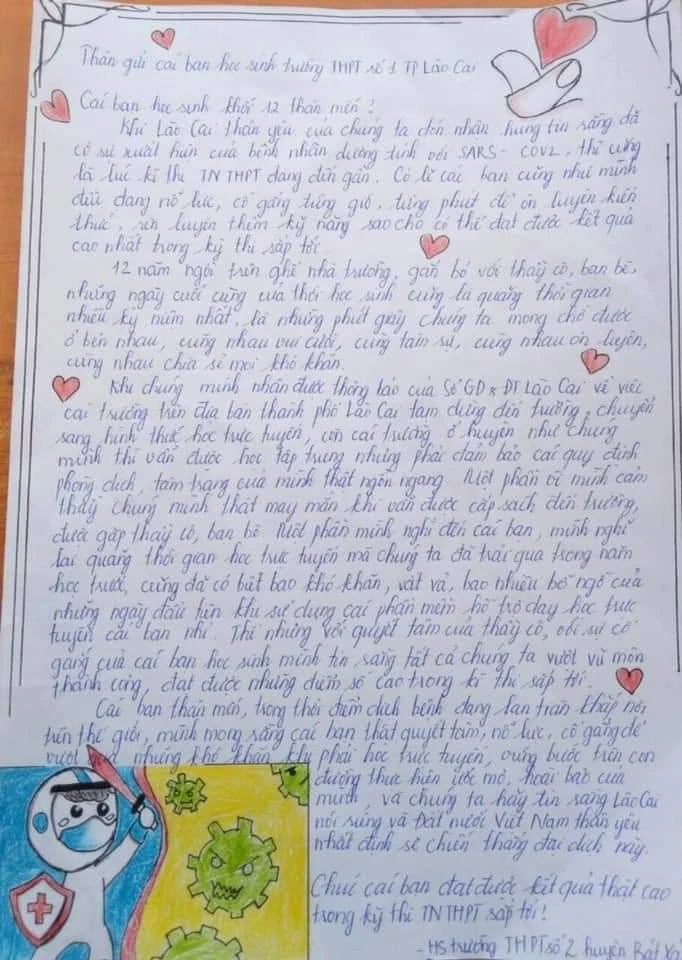 Thân gửi các bạn học sinh trường THPT số 1 TP Lào Cai
Các bạn học sinh khối 12 thân mến !
Khi Lào Cai thân yêu của chúng ta đón nhận hung tin rằng đã
có sự xuất hiện của bệnh nhân dương tính với SARS - COV2, thì cũng
là lúc kì thi TN THPT đang đến gần. Có lẽ các bạn cũng như mình
đều đang nỗ lực, cố gắng từng giờ, từng phút để ôn luyện kiến
thức, rèn luyện thêm kỹ năng sao cho có thể đạt được kết quả
cao nhất trong kỳ thi sắp tới.
12 năm ngồi trên ghế nhà trường, gắn bó với thầy cô, bạn bè,
những ngày cuối cùng của thời học sinh cũng là quãng thời gian
nhiều kỷ niệm nhất, là những phút giây chúng ta mong chờ được
ở bên nhau, cùng nhau vui cười, cùng tâm sự, cùng nhau ôn luyện,
cùng nhau chia sẻ mọi khó khăn.
Khi chúng mình nhận được thông báo của Sở GD & ĐT Lào Cai về việc
các trường trên địa bàn thành phố Lào Cai tạm dừng đến trường, chuyển
sang hình thức học trực tuyến, còn các trường ở huyện như chúng
mình thì vẫn được học tập trung nhưng phải đảm bảo các quy định
phòng dịch, tâm trạng của mình thật ngổn ngang. Một phần vì mình cảm
thấy chúng mình thật may mắn khi vẫn được cắp sách đến trường,
được gặp thầy cô, bạn bè. Một phần mình nghĩ đến các bạn, mình nghĩ
lại quãng thời gian học trực tuyến mà chúng ta đã trải qua trong năm
học trước, cũng đã có biết bao khó khăn, vất vả, bao nhiêu bỡ ngỡ của
những ngày đầu tiên khi sử dụng các phần mềm hỗ trợ dạy học trực
tuyến các bạn nhỉ. Thế nhưng với quyết tâm của thầy cô, với sự cố
gắng của các bạn học sinh mình tin rằng tất cả chúng ta vượt vũ môn
thành công, đạt được những điểm số cao trong kì thi sắp tới.
Các bạn thân mến, trong thời điểm dịch bệnh đang lan tràn khắp nơi
trên thế giới, mình mong rằng các bạn thật quyết tâm, nỗ lực, cố gắng để
vượt qua những khó khăn khi phải học trực tuyến, vững bước trên con
đường thực hiện ước mơ, hoài bão của
mình, và chúng ta hãy tin rằng Lào Cai
nói riêng và Đất nước Việt Nam thân yêu
nhất định sẽ chiến thắng đại dịch này.
Chúc các bạn đạt được kết quả thật cao
trong kỳ thi TN THPT sắp tới !
- HS trường THPT số 2 huyện Bát Xát